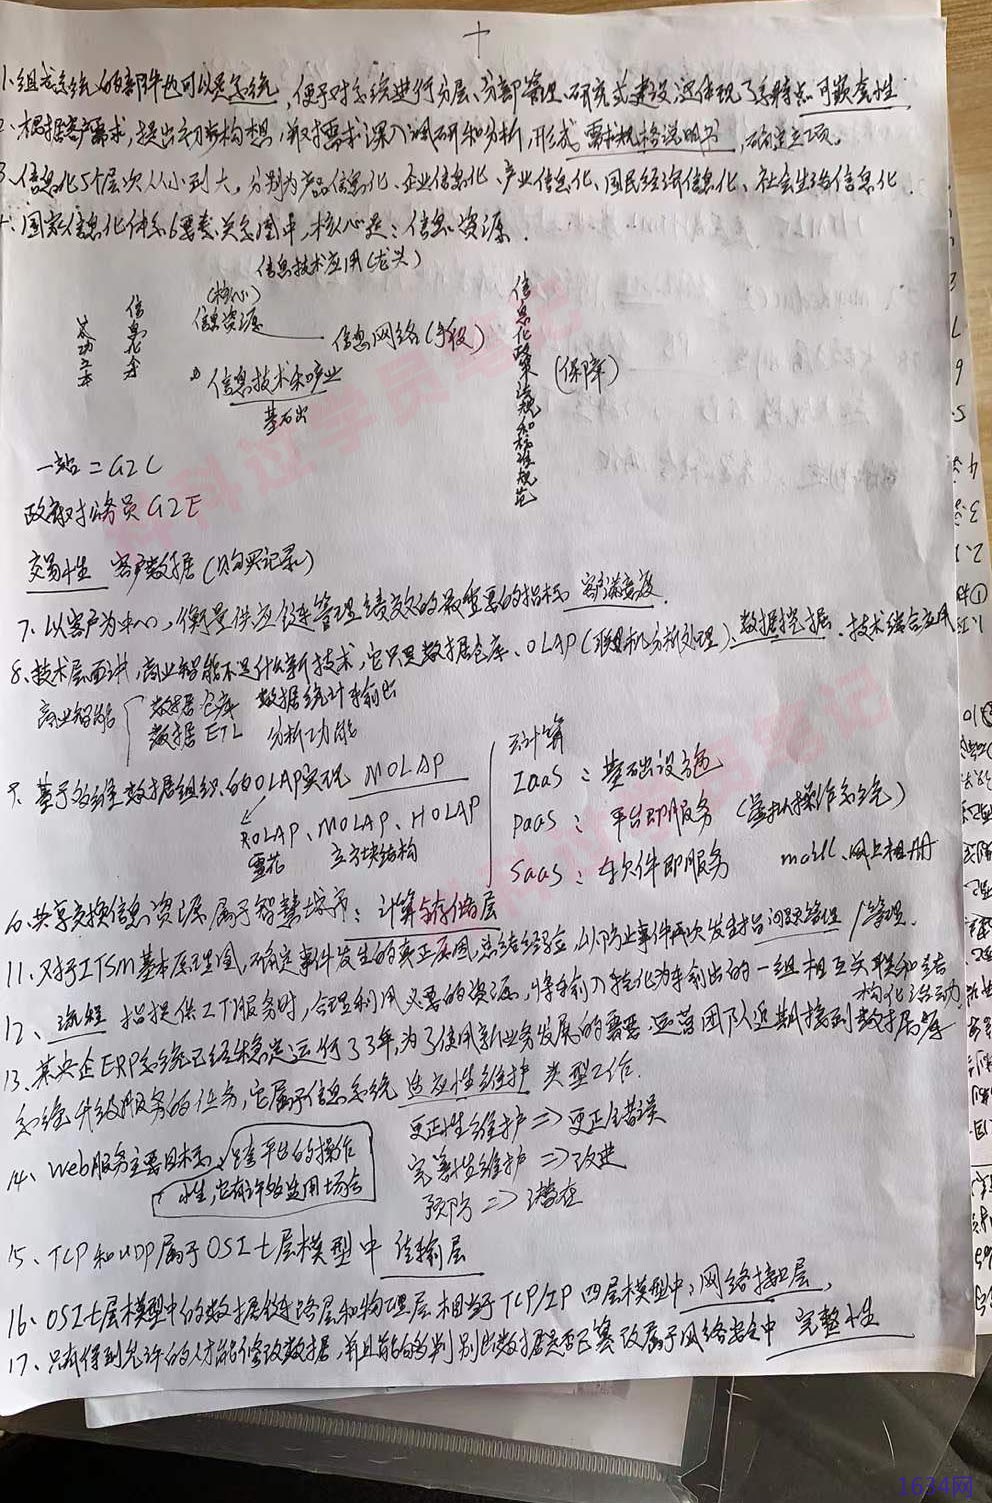 十
1、组成系统的部件也可以是系统，便于对系统进行分层、分部管理、研究或建设，这体现了系统特点 可嵌套性
2、根据客户需求，提出初步构想，对需求深入调研和分析，形成 需求规格说明书，确定立项。
3、信息化5个层次从小到大，分别为产品信息化、企业信息化、产业信息化、国民经济信息化、社会生活信息化
4、国家信息化体系6要素关系图中，核心是：信息资源．
信息技术应用(龙头)
成功之本
信息化人才
(核心)
信息资源
信息网络(手段)
信息技术和产业
基础
信息化政策法规和标准规范
(保障)
一站 = G2C
政府对公务员 G2E
交易性 客户数据(购买记录)
7、以客户为中心，衡量供应链管理绩效的最重要的指标 客户满意度.
8、技术层面讲，商业智能不是什么新技术，它只是数据仓库、OLAP(联机分析处理)、数据挖掘、技术综合应用
商业智能 数据仓库 数据统计输出
数据ETL 分析功能
9、基于多维数据组织的OLAP实现 MOLAP
ROLAP、MOLAP、HOLAP
雪花 立方块结构
云计算
IaaS：基础设施
PaaS：平台即服务 (虚拟操作系统)
SaaS：软件即服务 mail、网上相册
10、共享交换信息资源 属于智慧城市：计算与存储层
11、对于ITSM基本原理图，确定事件发生的真正原因，总结经验，以防止事件再次发生指问题管理 /管理．
12、流程 指提供IT服务时，合理利用必要的资源，将输入转化为输出的一组相互关联和结构化活动
13、某央企ERP系统已经稳定运行了3年，为了使用新业务发展的需要 运营团队近期接到数据库
系统升级服务的任务，它属于信息系统 适应性维护 类型工作．
更正性维护 ⇒ 更正错误
完善性维护 ⇒ 改进
预防 ⇒ 潜在
14、Web服务主要目标：跨平台的操作
性，它有许多适用场合
15、TCP和UDP属于OSI七层模型中 传输层
16、OSI七层模型中的数据链路层和物理层相当于TCP/IP四层模型中：网络接口层，
17、只有得到允许的人才能修改数据，并且能够判别出数据是否已篡改属于网络安全中 完整性
科科过学员笔记
科科过学员笔记
1634网